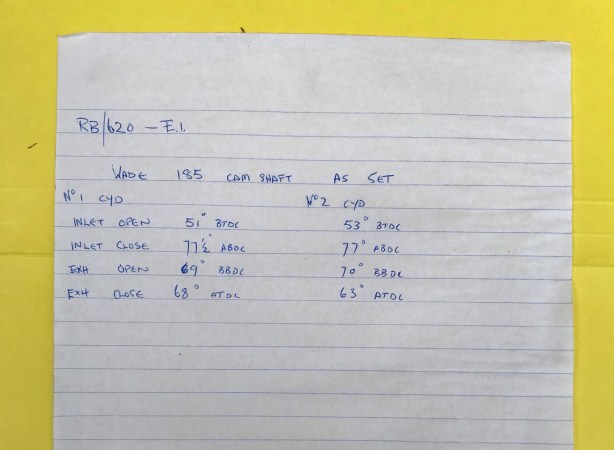 RB/620 - E.I.
WADE 185 CAM SHAFT AS SET
Nº1 CYD Nº2 CYD
INLET OPEN 51° BTDC 53° BTDC
INLET CLOSE 77½° ABDC 77° ABDC
EXH OPEN 69° BBDC 70° BBDC
EXH CLOSE 68° ATDC 63° ATDC